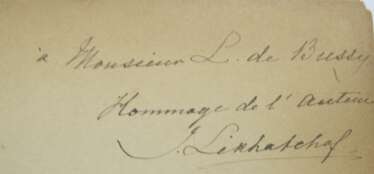 à Monsieur L. de Bussy
Hommage de l'Auteur
J. Likhatchof